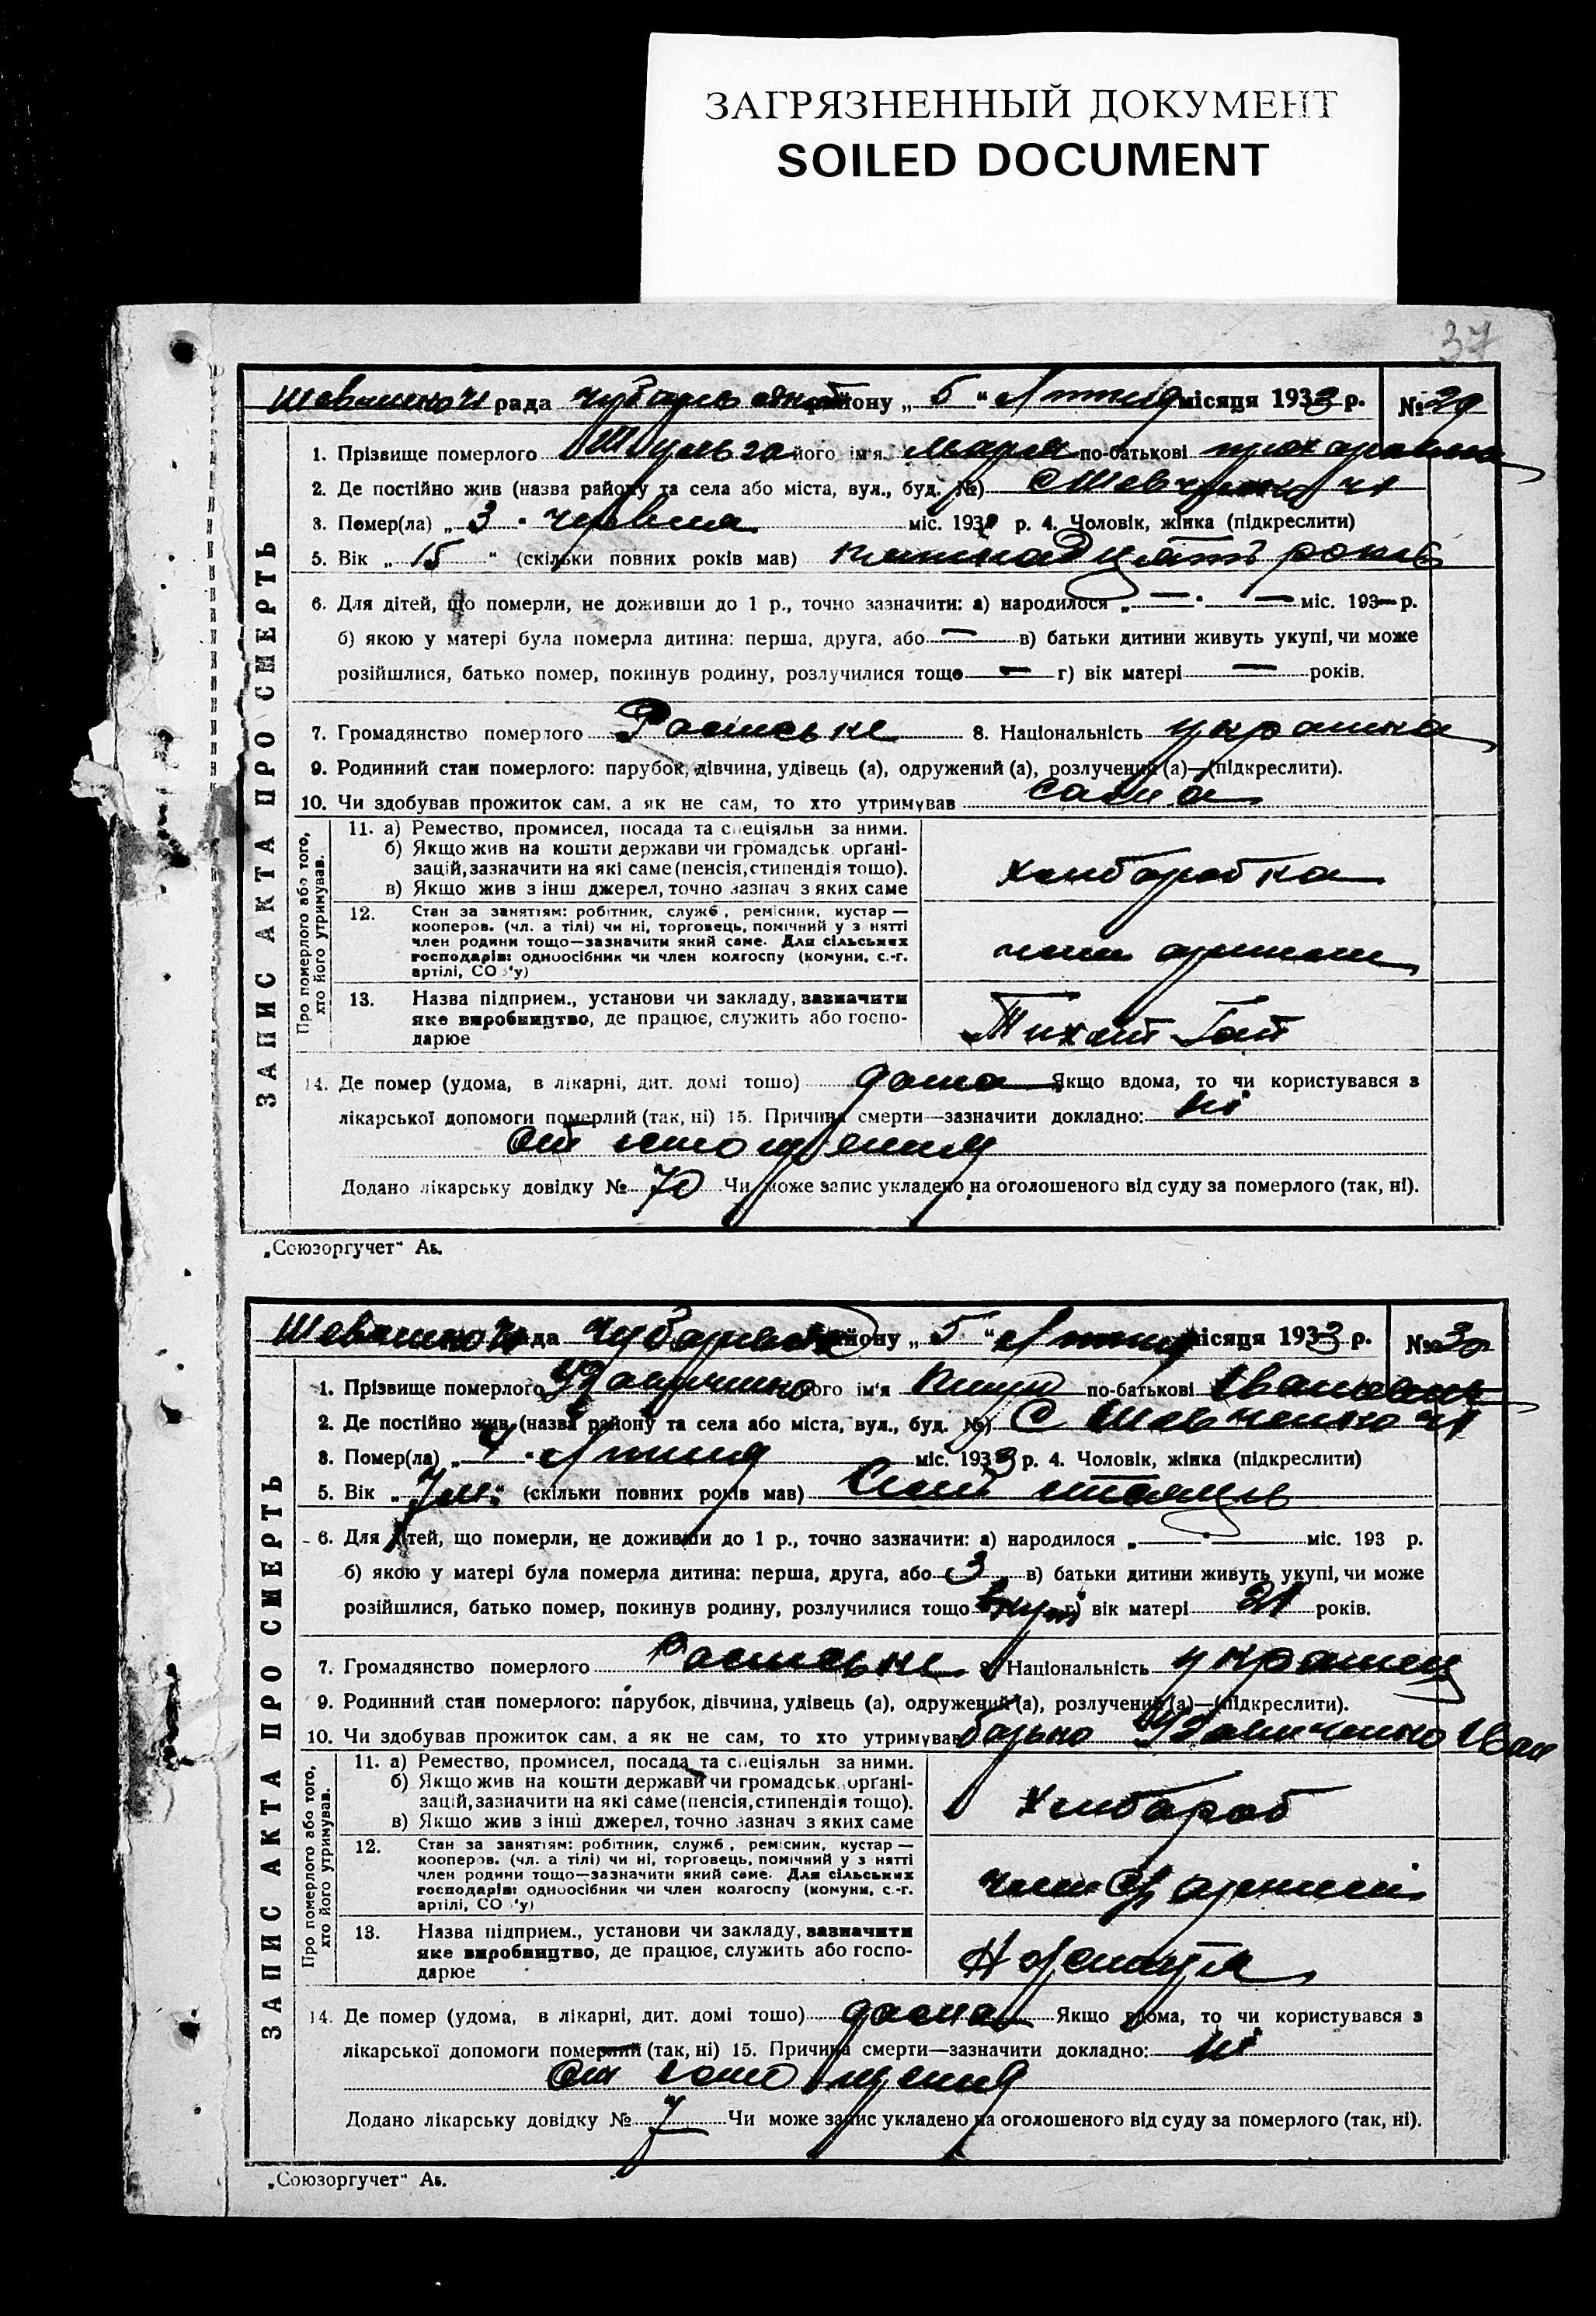 ЗАГРЯЗНЕННЫЙ ДОКУМЕНТ
SOILED DOCUMENT
37
рада йону „ 5 “ місяця 1933 р. № 29
1. Прізвище померлого його ім'я Марія по-батькові
2. Де постійно жив (назва району та села або міста, вул., буд. №) с
3. Помер(ла) „ 3 “ червня міс. 193 р. 4. Чоловік, жінка (підкреслити)
5. Вік „ 15 “ (скільки повних років мав) років
6. Для дітей, що померли, не доживши до 1 р., точно зазначити: а) народилося „ — “ — міс. 193— р.
б) якою у матері була померла дитина: перша, друга, або — в) батьки дитини живуть укупі, чи може
розійшлися, батько помер, покинув родину, розлучилися тощо — г) вік матері — років.
7. Громадянство померлого 8. Національність
9. Родинний стан померлого: парубок, дівчина, удівець (а), одружений (а), розлучений (а)—(підкреслити).
10. Чи здобував прожиток сам, а як не сам, то хто утримував сама
ЗАПИС АКТА ПРО СМЕРТЬ
Про померлого або того, хто його утримував.
11. а) Ремество, промисел, посада та спеціяльн за ними.
б) Якщо жив на кошти держави чи громадськ. органі-
зацій, зазначити на які саме (пенсія, стипендія тощо).
в) Якщо жив з інш джерел, точно зазнач з яких саме
хлиборобка
12. Стан за заняттям: робітник, служб, ремісник, кустар —
кооперов. (чл. а тілі) чи ні, торговець, помічний у з нятті
член родини тощо—зазначити який саме. Для сільських
господарів: одноосібник чи член колгоспу (комуни, с.-г.
артілі, СО 'у)
13. Назва підприєм., установи чи закладу, зазначити
яке виробництво, де працює, служить або госпо-
дарює
14. Де помер (удома, в лікарні, дит. домі тошо) дома Якщо вдома, то чи користувався з
лікарської допомоги померлий (так, ні) 15. Причина смерти—зазначити докладно: ні
От истощения
Додано лікарську довідку № 70 Чи може запис укладено на оголошеного від суду за померлого (так, ні).
„Союзоргучет“ Ак.
ада йону „ 5 “ місяця 1933 р. № 30
1. Прізвище померлого його ім'я по-батькові Іванович
2. Де постійно жив (назва району та села або міста, вул., буд. №) с
3. Помер(ла) „ 4 “ міс. 1933 р. 4. Чоловік, жінка (підкреслити)
5. Вік „ 7 м. “ (скільки повних років мав) місяців
6. Для дітей, що померли, не доживши до 1 р., точно зазначити: а) народилося „ “ міс. 193 р.
б) якою у матері була померла дитина: перша, друга, або 3 в) батьки дитини живуть укупі, чи може
розійшлися, батько помер, покинув родину, розлучилися тощо вкупі г) вік матері 21 років.
7. Громадянство померлого 8. Національність
9. Родинний стан померлого: парубок, дівчина, удівець (а), одружений (а), розлучений (а)—(підкреслити).
10. Чи здобував прожиток сам, а як не сам, то хто утримував батько Іван
ЗАПИС АКТА ПРО СМЕРТЬ
Про померлого або того, хто його утримував.
11. а) Ремество, промисел, посада та спеціяльн за ними.
б) Якщо жив на кошти держави чи громадськ. органі-
зацій, зазначити на які саме (пенсія, стипендія тощо).
в) Якщо жив з інш джерел, точно зазнач з яких саме
хлибороб
12. Стан за заняттям: робітник, служб, ремісник, кустар —
кооперов. (чл. а тілі) чи ні, торговець, помічний у з нятті
член родини тощо—зазначити який саме. Для сільських
господарів: одноосібник чи член колгоспу (комуни, с.-г.
артілі, СО 'у)
13. Назва підприєм., установи чи закладу, зазначити
яке виробництво, де працює, служить або госпо-
дарює
14. Де помер (удома, в лікарні, дит. домі тошо) дома Якщо вдома, то чи користувався з
лікарської допомоги померлий (так, ні) 15. Причина смерти—зазначити докладно: ні
От истощения
Додано лікарську довідку № 7 Чи може запис укладено на оголошеного від суду за померлого (так, ні).
„Союзоргучет“ Ак.